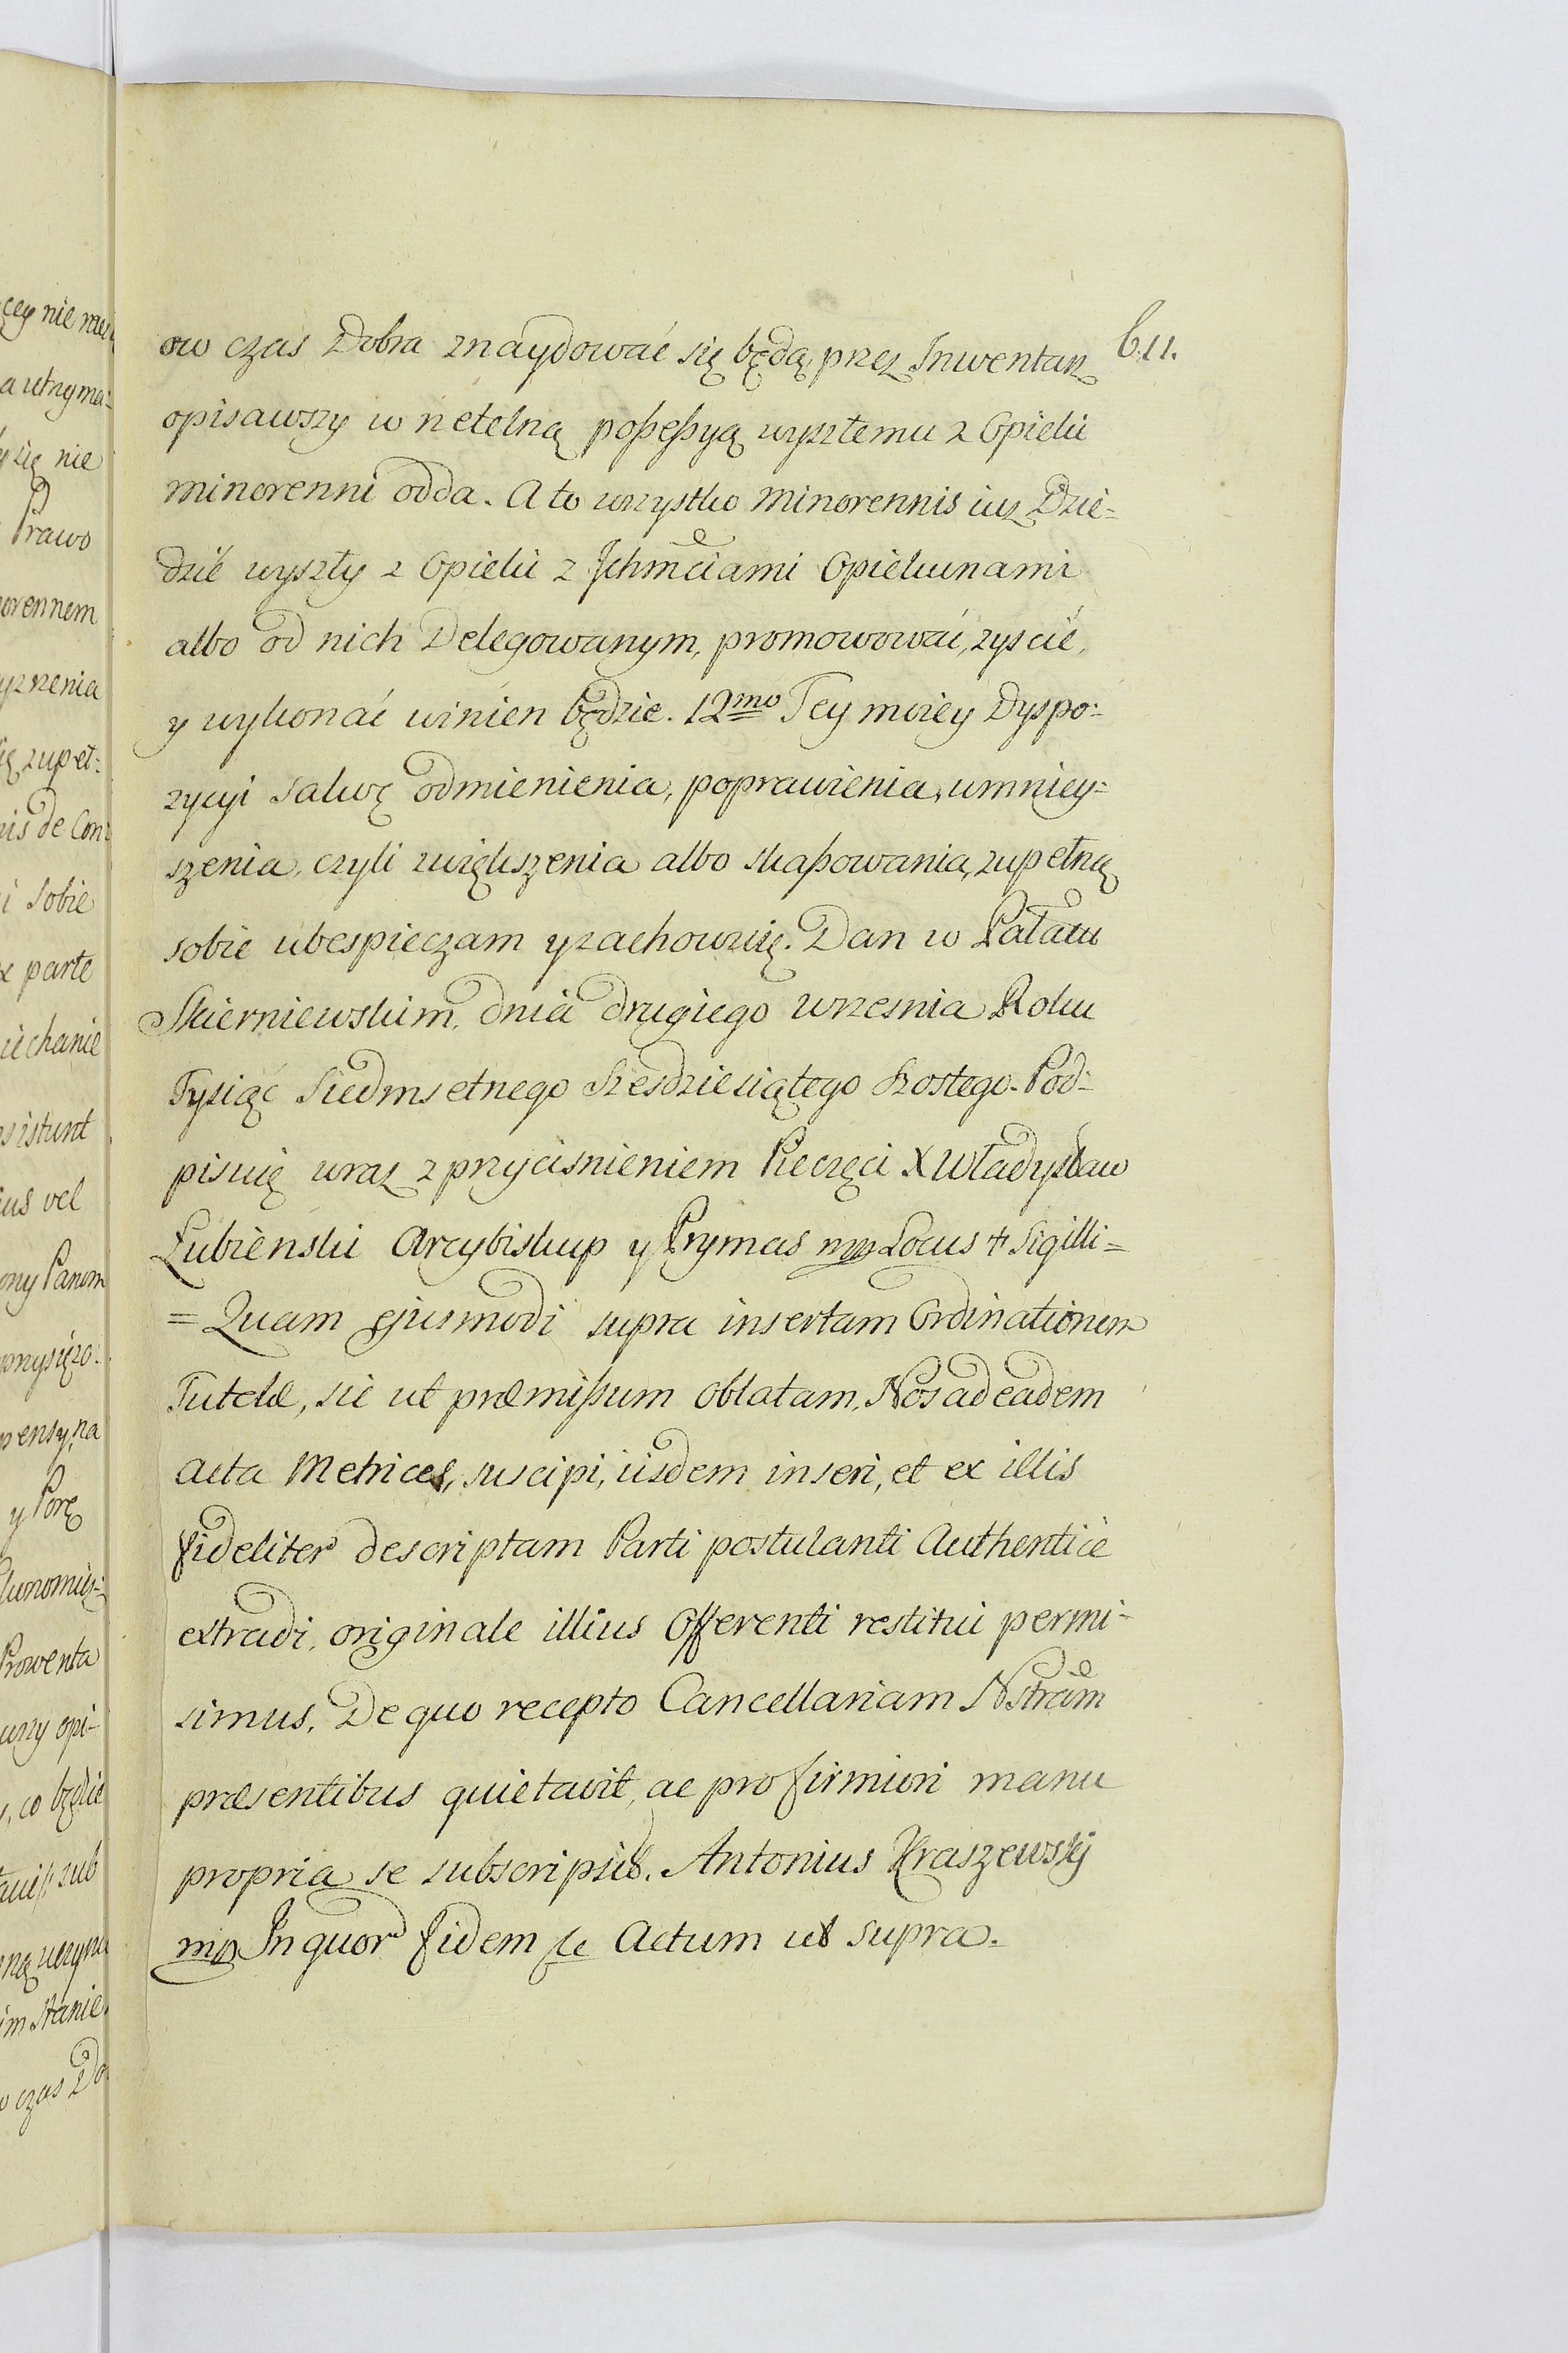 ow czas Dobra znaydować się będą, przez Inwentarz
611.
opisawszy w rzetelną poßeßyą wyszłemu z Opieki
minorenni odda. A to wszystko Minorennis iuz Dzie=
dzic wyszły z Opieki z Jchmciami Opiekunami
albo od nich Delegowanym, promowować, zyscić,
y wykonać winien będzie. 12mo Tey moiey Dyspo=
zycyi salwę odmienienia, poprawienia, umniey=
szenia, czyli zwiększenia albo skaßowania, zupełną
sobie ubespieczam y zachowuię. Dan w Pałacu
Skierniewskim, dnia drugiego wrzesnia Roku
Tysiąc Siedmsetnego Szesdziesiątego Szostego. Pod=
pisuię wraz z przycisnieniem Pieczęci X Władysław
Łubienski Arcybiskup y Prymas mp Locus + Sigilli=
= Quam ejusmodi supra insertam Ordinationem
Tutelæ, sic ut præmißum oblatam, Nos ad eadem
Acta Metrices, suscipi, iisdem inseri, et ex illis
fideliter descriptam Parti postulanti Authenticè
extradi, originale illius Offerenti restitui permi-
simus, De quo recepto Cancellariam Nstram
præsentibus quietavit, ac pro firmiori manu
propria se subscripsit. Antonius Kraszewskj
mp In quor fidem &c Actum ut supra.
ozy nie
a utrzyma=
się nie
Prawo
orennem
zupeł=
is de Con=
i sobie
x parte
iechanie
sistunt
ius vel
ony Panom
przysięzo=
y Porę
Prowenta
wszy opi-
, co będzie
zub
im Stanie,
czas Do